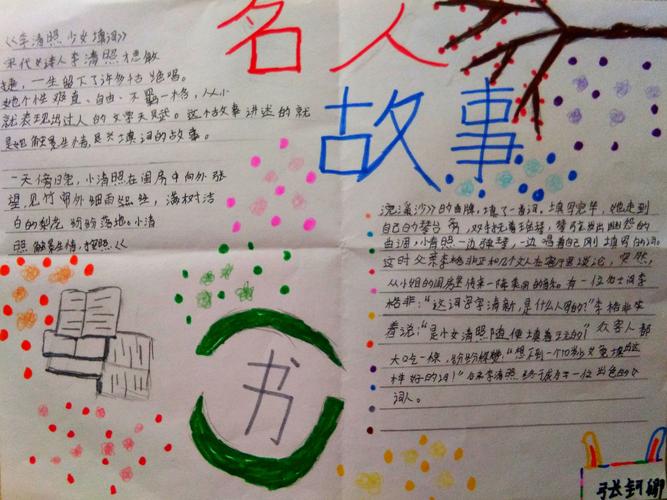 名人
故事
《李清照少女填词》
宋代女诗人李清照才思敏
捷,一生留下了许多枯绝唱。
她个性率直、自由、不羁一格,从小
就表现出过人的文学天赋。这个故事讲述的就
是她触景生情,是关填词的故事。
一天傍晚,小清照在闺房中向外张
望见竹帘外细雨丝丝,满树洁
白的梨花纷纷落地。小清
照触景生情,按照《
浣溪沙》的曲牌,填了一首词。填写完毕,她走到
自己的琴台旁,双手抚着琴弦,琴声发出幽怨的
曲调,小清照一边弹琴,一边唱着自己刚填写的词。
这时父亲李格非正和几个文人在客厅里谈论,突然,
从小姐的闺房里传来一阵美妙的音乐。有一位力士问李
格非:“这词写字清新,是什么人写的?”李格非笑
着说:“是小女清照随便填着玩的!”众客人都
大吃一惊,纷纷称赞:“想不到一个10岁少女竟填这
样好的词!”后来李清照终于成为了一位出色的女
词人。
书